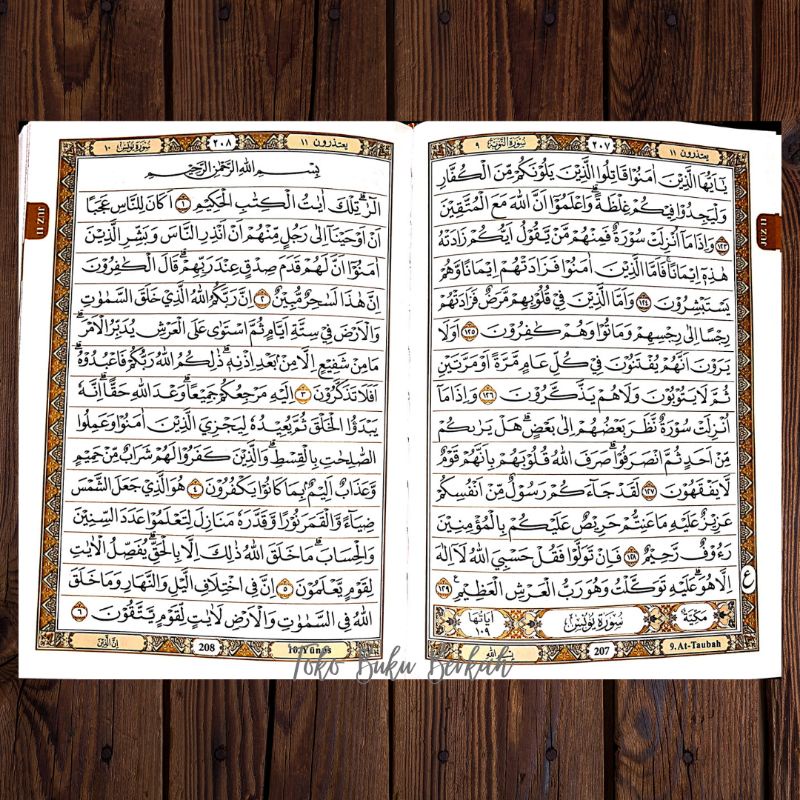 سورة التوبة ٩
٢٠٧
يعتذرون ١١
يٰٓاَيُّهَا الَّذِيْنَ اٰمَنُوْا قَاتِلُوا الَّذِيْنَ يَلُوْنَكُمْ مِّنَ الْكُفَّارِ
وَلْيَجِدُوْا فِيْكُمْ غِلْظَةًۗ وَاعْلَمُوْٓا اَنَّ اللّٰهَ مَعَ الْمُتَّقِيْنَ
١٢٣ وَاِذَا مَآ اُنْزِلَتْ سُوْرَةٌ فَمِنْهُمْ مَّنْ يَّقُوْلُ اَيُّكُمْ زَادَتْهُ
هٰذِهٖٓ اِيْمَانًاۚ فَاَمَّا الَّذِيْنَ اٰمَنُوْا فَزَادَتْهُمْ اِيْمَانًا وَّهُمْ
يَسْتَبْشِرُوْنَ ١٢٤ وَاَمَّا الَّذِيْنَ فِيْ قُلُوْبِهِمْ مَّرَضٌ فَزَادَتْهُمْ
رِجْسًا اِلٰى رِجْسِهِمْ وَمَاتُوْا وَهُمْ كٰفِرُوْنَ ١٢٥ اَوَلَا
يَرَوْنَ اَنَّهُمْ يُفْتَنُوْنَ فِيْ كُلِّ عَامٍ مَّرَّةً اَوْ مَرَّتَيْنِ
ثُمَّ لَا يَتُوْبُوْنَ وَلَا هُمْ يَذَّكَّرُوْنَ ١٢٦ وَاِذَا مَآ
اُنْزِلَتْ سُوْرَةٌ نَّظَرَ بَعْضُهُمْ اِلٰى بَعْضٍۗ هَلْ يَرٰىكُمْ
مِّنْ اَحَدٍ ثُمَّ انْصَرَفُوْاۗ صَرَفَ اللّٰهُ قُلُوْبَهُمْ بِاَنَّهُمْ قَوْمٌ
لَّا يَفْقَهُوْنَ ١٢٧ لَقَدْ جَاۤءَكُمْ رَسُوْلٌ مِّنْ اَنْفُسِكُمْ
عَزِيْزٌ عَلَيْهِ مَا عَنِتُّمْ حَرِيْصٌ عَلَيْكُمْ بِالْمُؤْمِنِيْنَ
رَءُوْفٌ رَّحِيْمٌ ١٢٨ فَاِنْ تَوَلَّوْا فَقُلْ حَسْبِيَ اللّٰهُ لَآ اِلٰهَ
اِلَّا هُوَۗ عَلَيْهِ تَوَكَّلْتُ وَهُوَ رَبُّ الْعَرْشِ الْعَظِيْمِ ١٢٩
ع
مكية سورة يونس آياتها ١٠٩
9.At-Taubah
207
JUZ 11
سورة يونس ١٠
٢٠٨
يعتذرون ١١
بِسْمِ اللّٰهِ الرَّحْمٰنِ الرَّحِيْمِ
الۤرٰۗ تِلْكَ اٰيٰتُ الْكِتٰبِ الْحَكِيْمِ ١ اَكَانَ لِلنَّاسِ عَجَبًا
اَنْ اَوْحَيْنَآ اِلٰى رَجُلٍ مِّنْهُمْ اَنْ اَنْذِرِ النَّاسَ وَبَشِّرِ الَّذِيْنَ
اٰمَنُوْٓا اَنَّ لَهُمْ قَدَمَ صِدْقٍ عِنْدَ رَبِّهِمْۗ قَالَ الْكٰفِرُوْنَ
اِنَّ هٰذَا لَسٰحِرٌ مُّبِيْنٌ ٢ اِنَّ رَبَّكُمُ اللّٰهُ الَّذِيْ خَلَقَ السَّمٰوٰتِ
وَالْاَرْضَ فِيْ سِتَّةِ اَيَّامٍ ثُمَّ اسْتَوٰى عَلَى الْعَرْشِ يُدَبِّرُ الْاَمْرَۗ
مَا مِنْ شَفِيْعٍ اِلَّا مِنْۢ بَعْدِ اِذْنِهٖۗ ذٰلِكُمُ اللّٰهُ رَبُّكُمْ فَاعْبُدُوْهُۗ
اَفَلَا تَذَكَّرُوْنَ ٣ اِلَيْهِ مَرْجِعُكُمْ جَمِيْعًاۗ وَعْدَ اللّٰهِ حَقًّاۗ اِنَّهٗ
يَبْدَؤُا الْخَلْقَ ثُمَّ يُعِيْدُهٗ لِيَجْزِيَ الَّذِيْنَ اٰمَنُوْا وَعَمِلُوا
الصّٰلِحٰتِ بِالْقِسْطِۗ وَالَّذِيْنَ كَفَرُوْا لَهُمْ شَرَابٌ مِّنْ حَمِيْمٍ
وَّعَذَابٌ اَلِيْمٌۢ بِمَا كَانُوْا يَكْفُرُوْنَ ٤ هُوَ الَّذِيْ جَعَلَ الشَّمْسَ
ضِيَاۤءً وَّالْقَمَرَ نُوْرًا وَّقَدَّرَهٗ مَنَازِلَ لِتَعْلَمُوْا عَدَدَ السِّنِيْنَ
وَالْحِسَابَۗ مَا خَلَقَ اللّٰهُ ذٰلِكَ اِلَّا بِالْحَقِّۗ يُفَصِّلُ الْاٰيٰتِ
لِقَوْمٍ يَّعْلَمُوْنَ ٥ اِنَّ فِى اخْتِلَافِ الَّيْلِ وَالنَّهَارِ وَمَا خَلَقَ
اللّٰهُ فِى السَّمٰوٰتِ وَالْاَرْضِ لَاٰيٰتٍ لِّقَوْمٍ يَّتَّقُوْنَ ٦
10.Yūnus
208
JUZ 11
Toko Buku Berkah